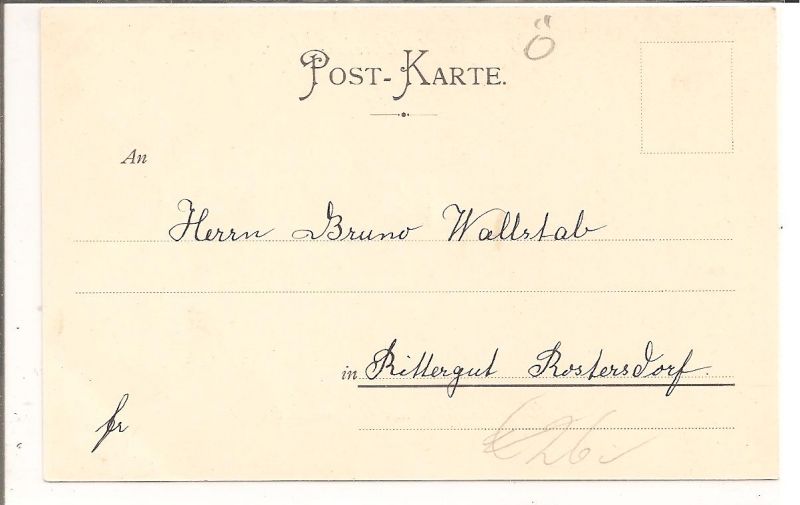 POST-KARTE.
Ö
An
Herrn Bruno Wallstab
in Rittergut Rostersdorf.
fr
26